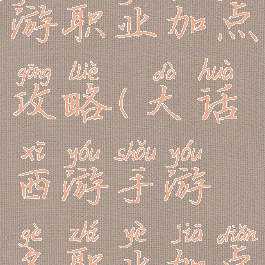 游职业加点
gōng lüè dà huà
攻略(大话
xī yóu shǒu yóu
西游手游
gè zhí yè jiā diǎn
各职业加点